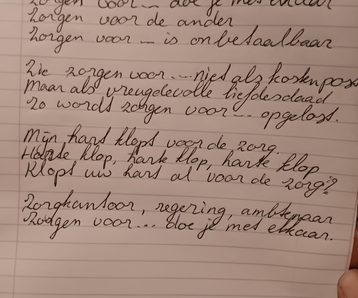 Zorgen voor... doe je met elkaar
Zorgen voor de ander
Zorgen voor ... is onbetaalbaar
Zie zorgen voor ... niet als kostenpost
Maar als vreugdevolle liefdesdaad
Zo wordt zorgen voor ... opgelost.
Mijn hart klopt voor de zorg.
Harte klop, harte klop, harte klop
Klopt uw hart al voor de zorg?
Zorgkantoor, regering, ambtenaar
Zorgen voor... doe je met elkaar.